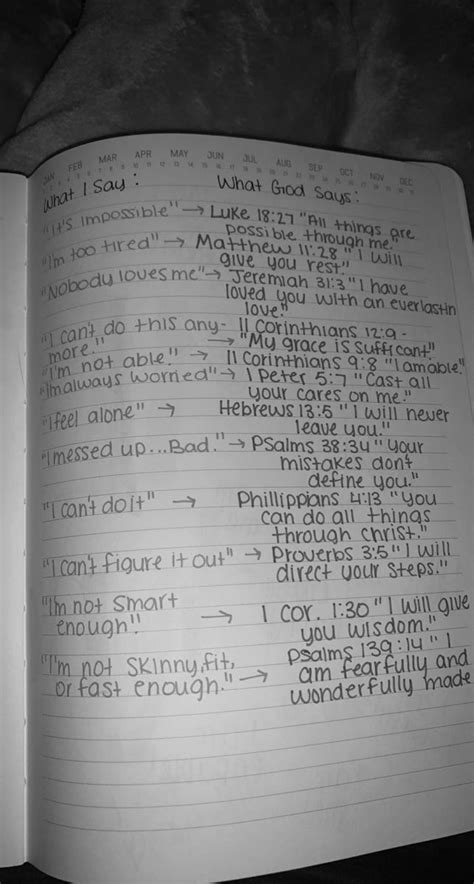 JAN FEB MAR APR MAY JUN JUL AUG SEP OCT NOV DEC
What I Say: What God Says:
"It's impossible" → Luke 18:27 "All things are
possible through me."
"I'm too tired" → Matthew 11:28 "I will
give you rest."
"Nobody loves me" → Jeremiah 31:3 "I have
loved you with an everlastin
love."
"I can't do this any- II Corinthians 12:9 -
more." → "My grace is sufficant."
"I'm not able" → II Corinthians 9:8 "I am able."
"I'm always worried" → 1 Peter 5:7 "Cast all
your cares on me."
"I feel alone" → Hebrews 13:5 "I will never
leave you."
"I messed up...Bad." → Psalms 38:34 "Your
mistakes don't
define you."
"I can't do it" → Phillippians 4:13 "You
can do all things
through Christ."
"I can't figure it out" → Proverbs 3:5 "I will
direct your steps."
"I'm not smart
enough." → 1 Cor. 1:30 "I will give
you wisdom."
"I'm not skinny, fit, Psalms 139:14 "I
or fast enough." → am fearfully and
wonderfully made